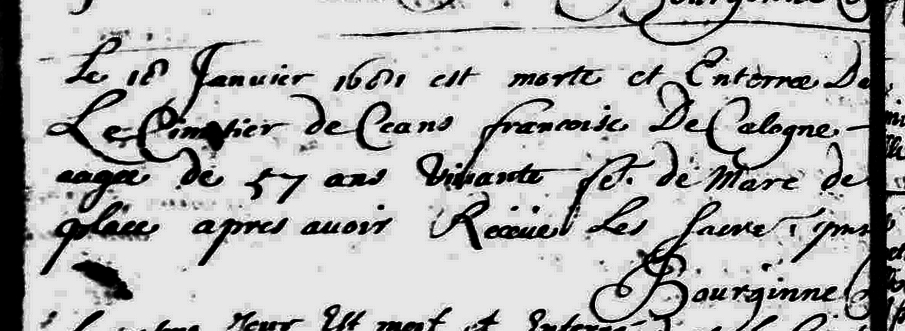 Bourginne
Le 18 Januier 1681 est morte et Enterree Da
Le Cimetier de Ceans francoise De Calogne
aagee de 57 ans Viuante fe. de Marc de
place apres auoir Receue Les Sacre
Bourginne
Jour Est mort et Enterré